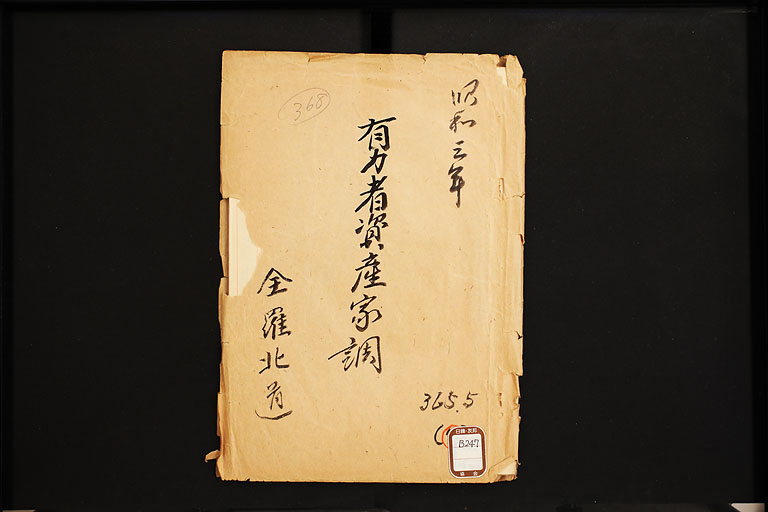 昭和三年
368
有力者資産家調
全羅北道
365.5
日韓・友邦
B247